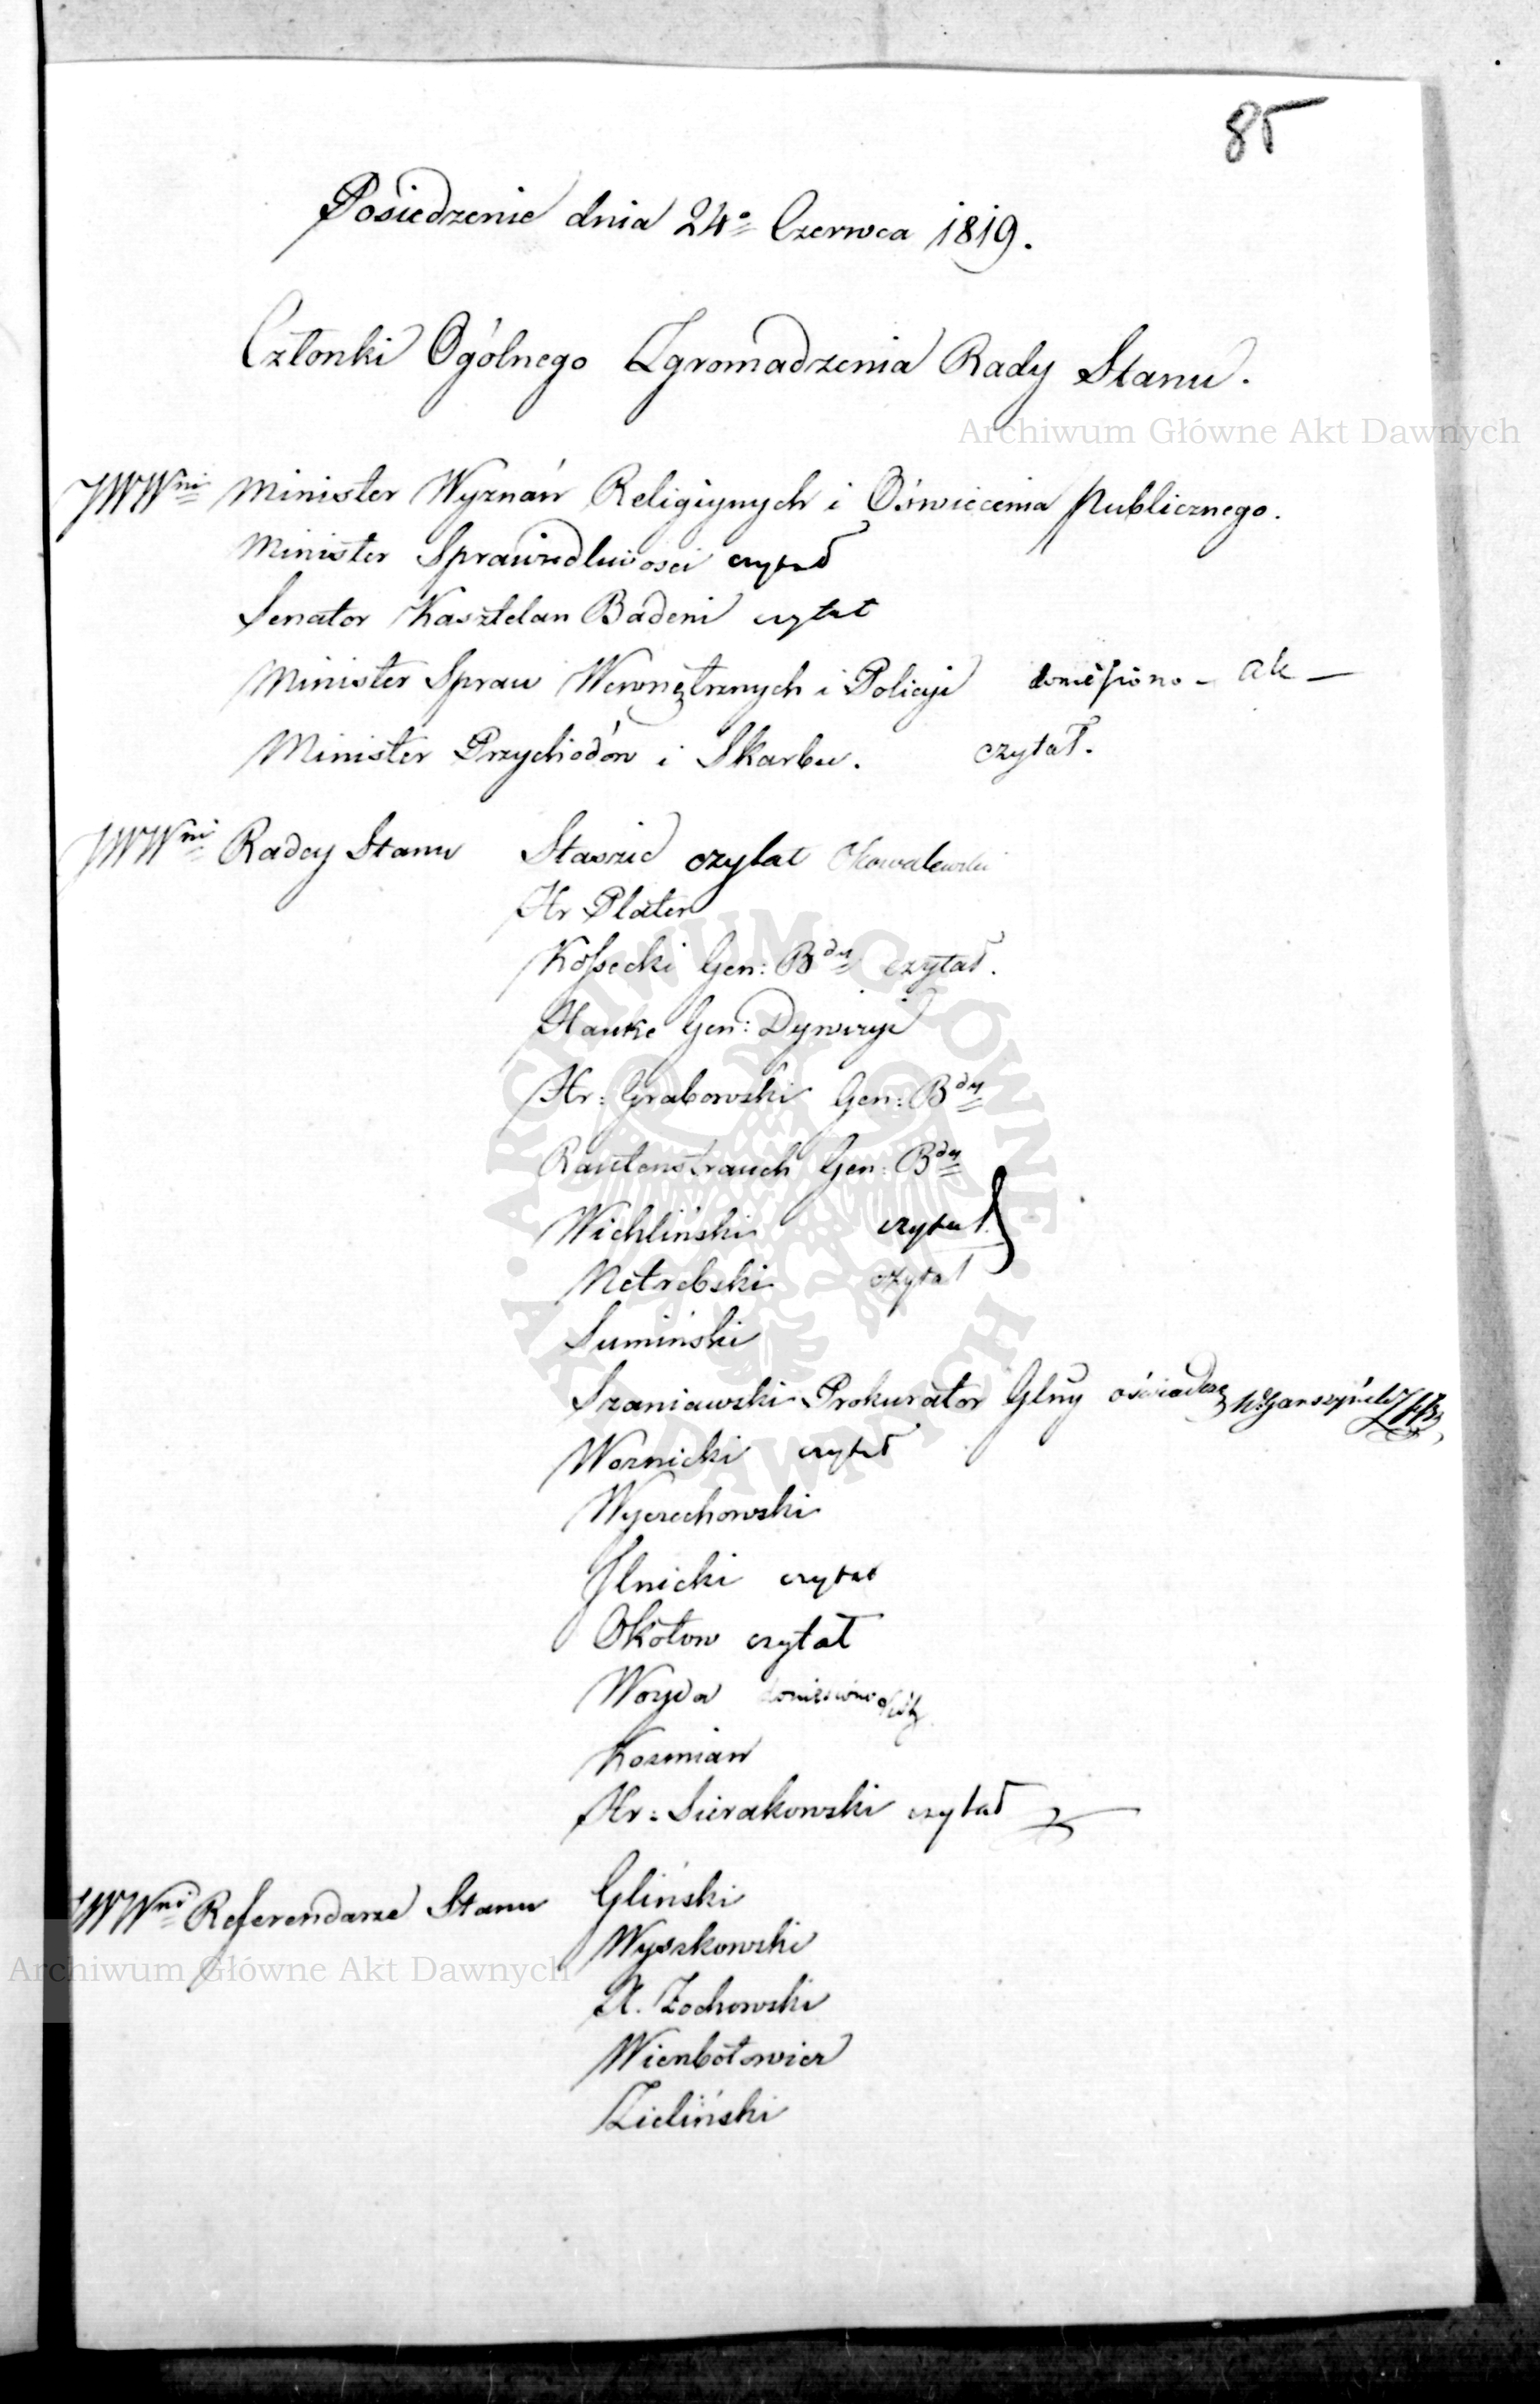 85
Posiedzenie dnia 24º Czerwca 1819.
Członki Ogólnego Zgromadzenia Rady Stanu.
Archiwum Główne Akt Dawnych
JWWni Minister Wyznań Religiynych i Oświecenia Publicznego.
Minister Sprawiedliwości czytał
Senator Kasztelan Badeni czytał
Minister Spraw Wewnętrznych i Policyi doniesiono -
Minister Przychodów i Skarbu. czytał.
JWWni Radcy Stanu Staszic czytał
Hr Plater
Kossecki Gen: Bdy czytał.
Hauke Gen: Dywizyi
Hr: Grabowski Gen: Bdy
Rautenstrauch Gen: Bdy
Wichliński czytał
Netrebski czytał
Sumiński
Szaniawski Prokurator Glny
Woznicki czytał
Wyczechowski
Ilnicki czytał
Okołow czytał
Woyda
Kozmian
Hr: Sierakowski czytał
JWWni Referendarze Stanu Gliński
Wyszkowski
X. Zochowski
Wienbołowicz
Zieliński
Archiwum Główne Akt Dawnych
ARCHIWUM GŁÓWNE AKT DAWNYCH